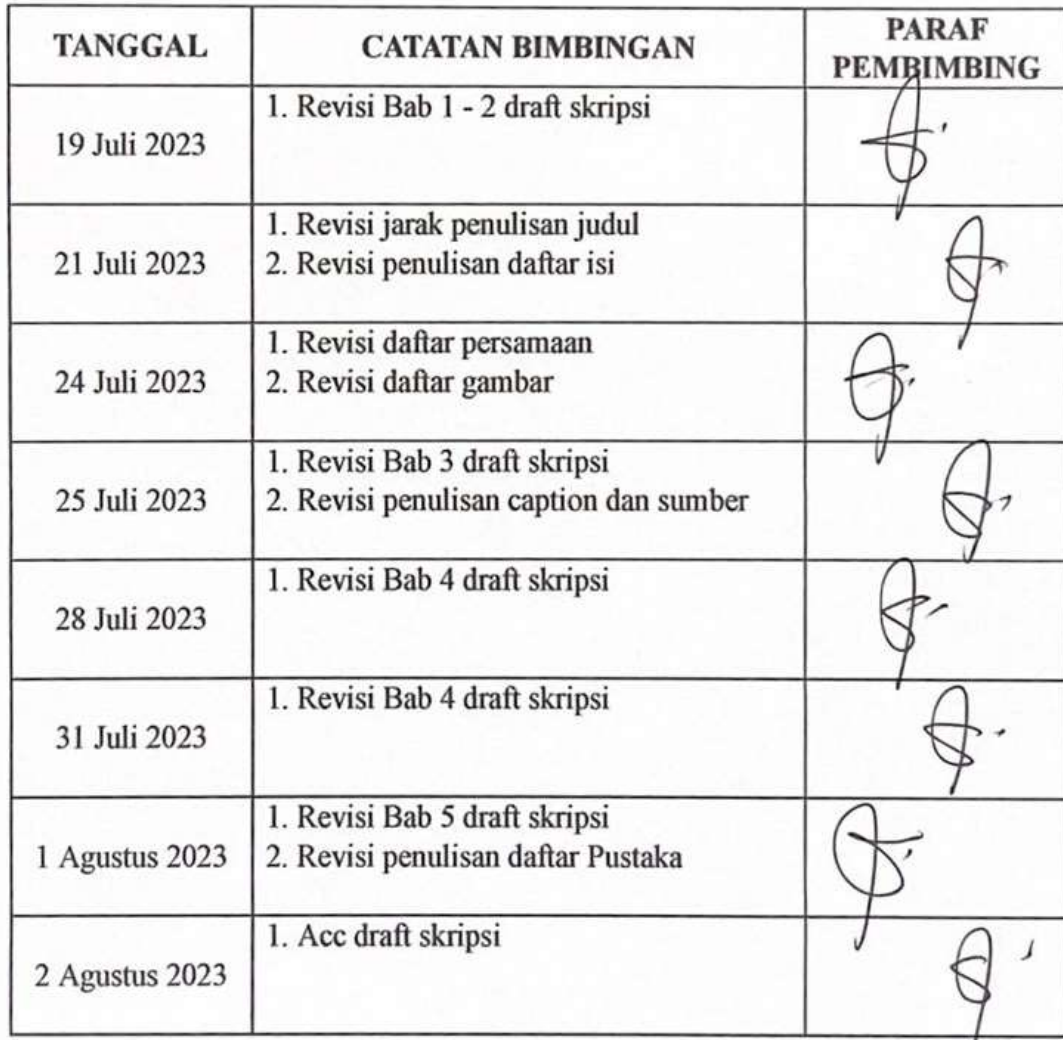 TANGGAL
CATATAN BIMBINGAN
PARAF
PEMBIMBING
19 Juli 2023
1. Revisi Bab 1 - 2 draft skripsi
21 Juli 2023
1. Revisi jarak penulisan judul
2. Revisi penulisan daftar isi
24 Juli 2023
1. Revisi daftar persamaan
2. Revisi daftar gambar
25 Juli 2023
1. Revisi Bab 3 draft skripsi
2. Revisi penulisan caption dan sumber
28 Juli 2023
1. Revisi Bab 4 draft skripsi
31 Juli 2023
1. Revisi Bab 4 draft skripsi
1 Agustus 2023
1. Revisi Bab 5 draft skripsi
2. Revisi penulisan daftar Pustaka
2 Agustus 2023
1. Acc draft skripsi